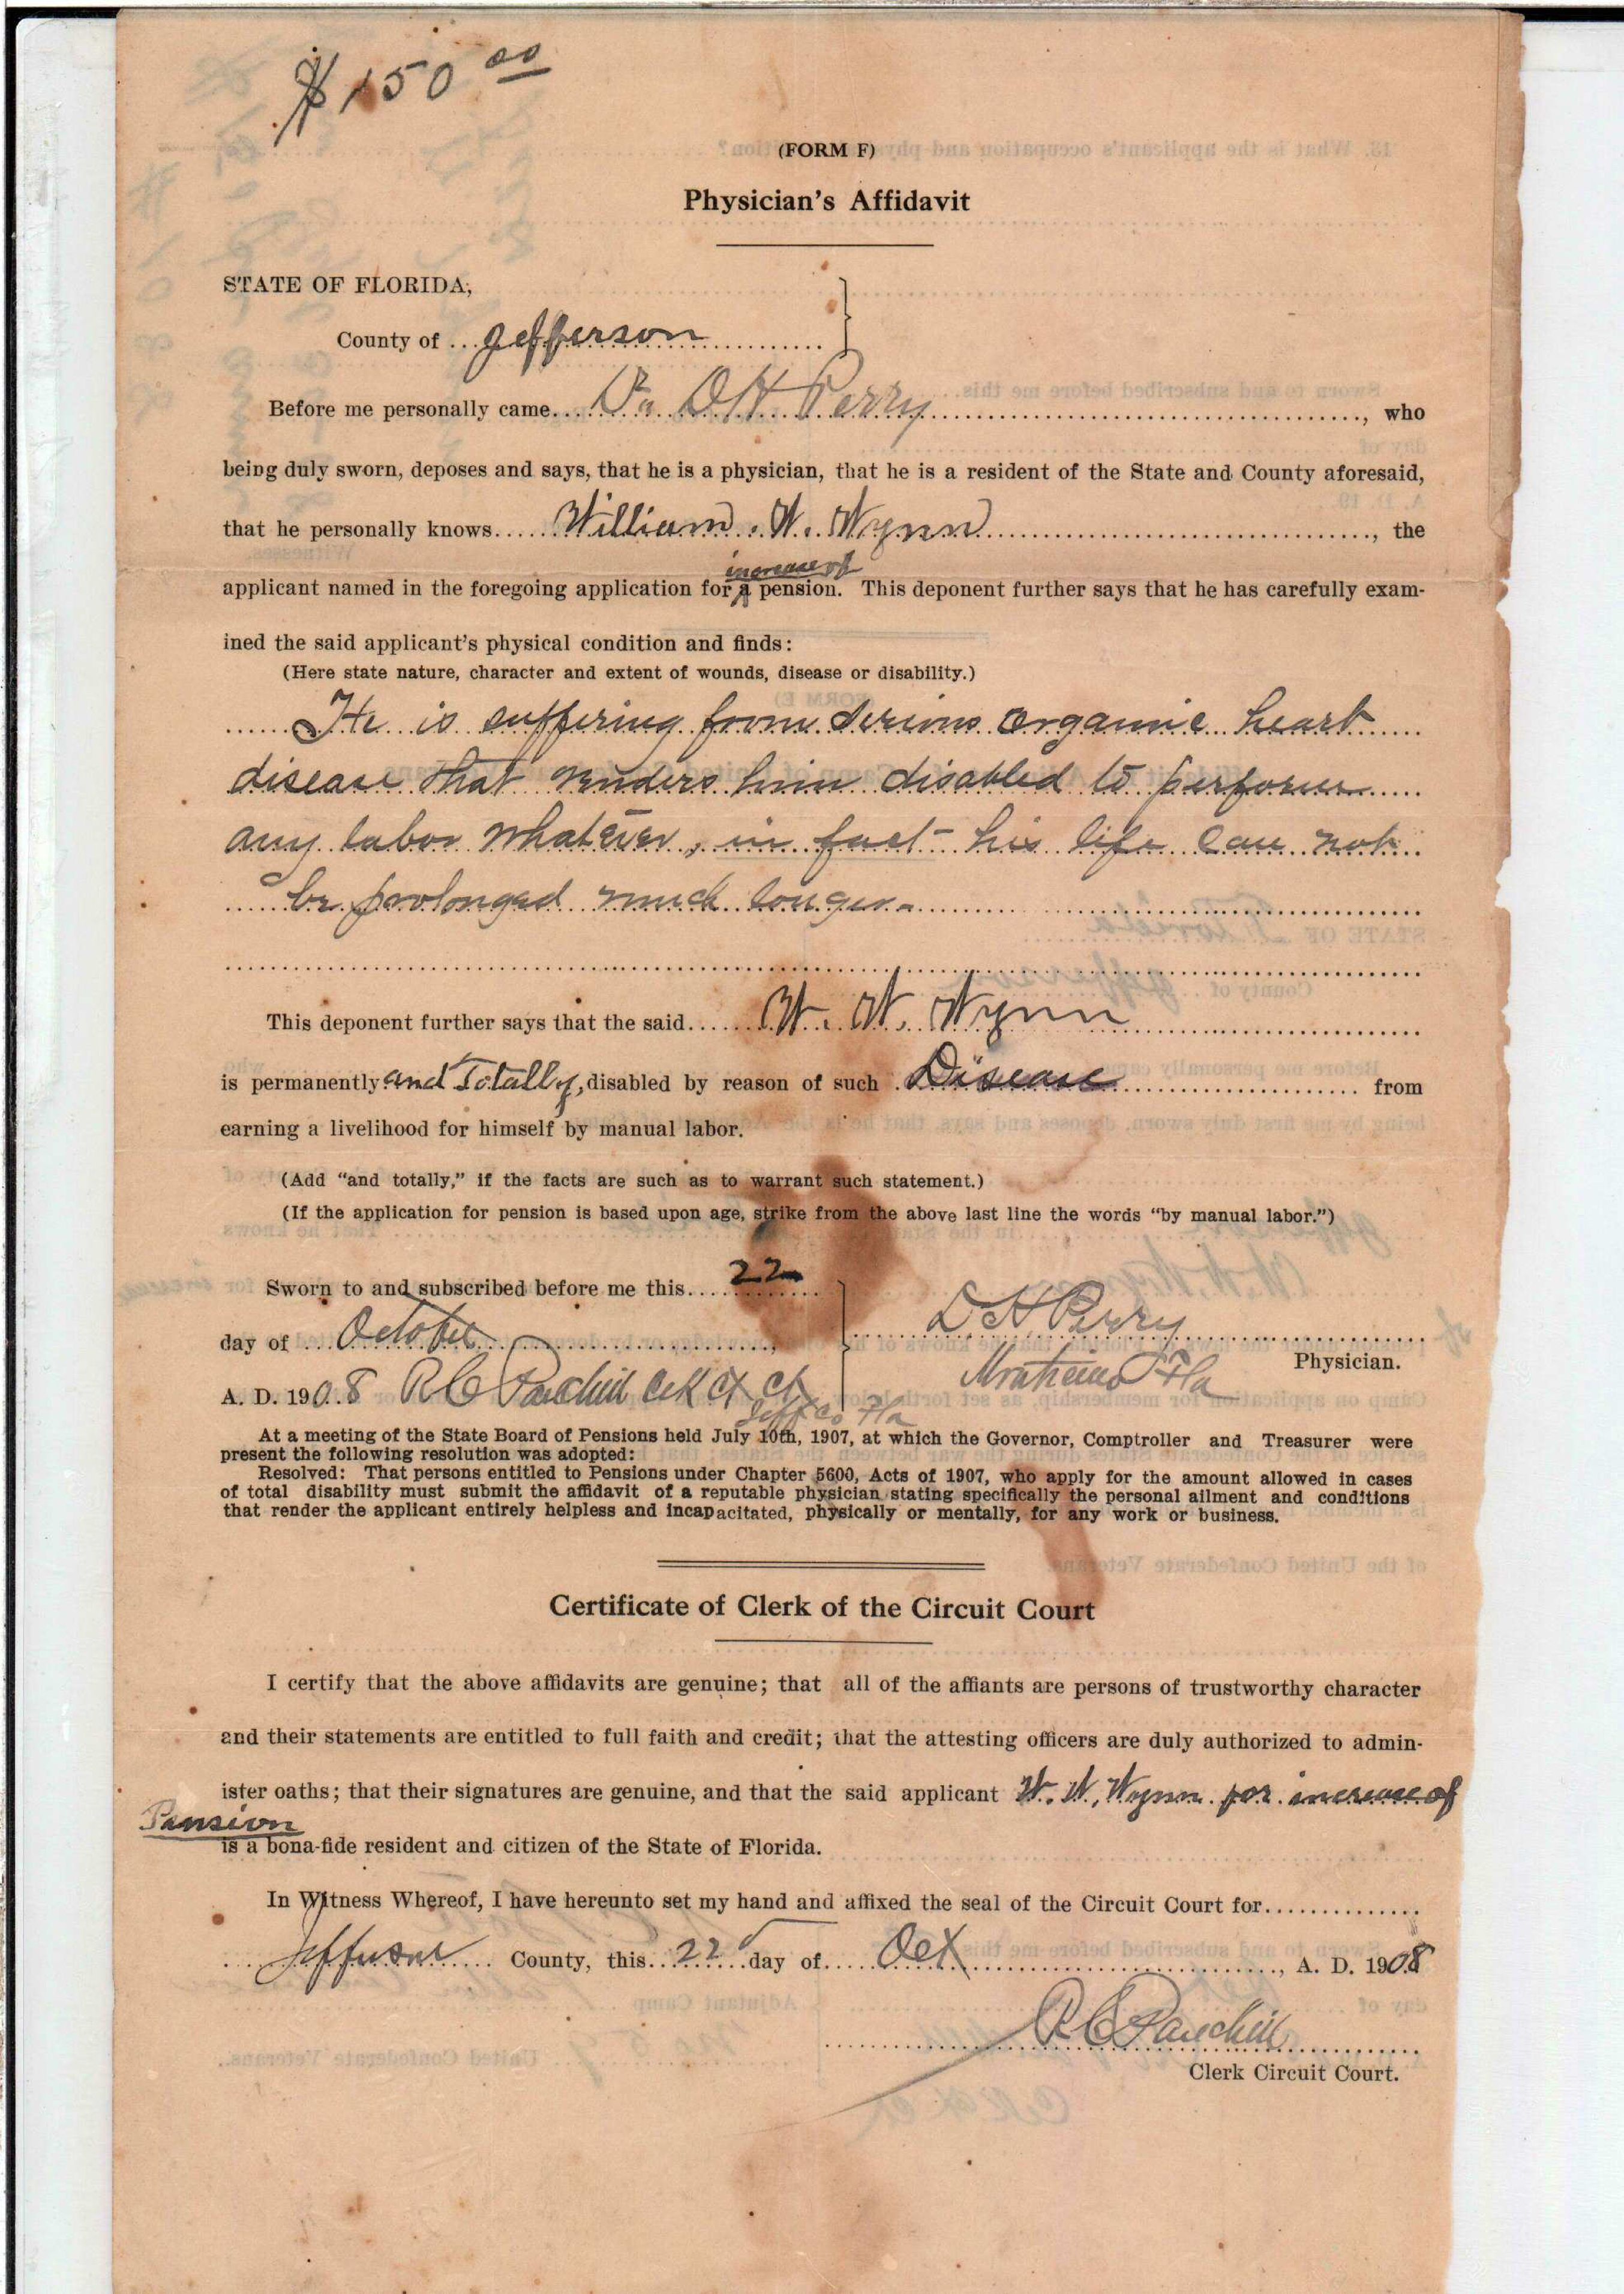 $150 00
(FORM F)
Physician's Affidavit
STATE OF FLORIDA,
County of Jefferson
Before me personally came Dr D H Perry, who
being duly sworn, deposes and says, that he is a physician, that he is a resident of the State and County aforesaid,
that he personally knows William. W. Wynn, the
increase of
applicant named in the foregoing application for a pension. This deponent further says that he has carefully exam-
ined the said applicant's physical condition and finds:
(Here state nature, character and extent of wounds, disease or disability.)
He is suffering from serious organic heart
disease that renders him disabled to perform
any labor whatever, in fact his life can not
be prolonged much longer.
This deponent further says that the said W. W. Wynn
is permanently and Totally, disabled by reason of such Disease from
earning a livelihood for himself by manual labor.
(Add "and totally," if the facts are such as to warrant such statement.)
(If the application for pension is based upon age, strike from the above last line the words "by manual labor.")
Sworn to and subscribed before me this 22
day of October,
D H Perry
Physician.
A. D. 1908 R C Clk Ct Ct
Monticello Fla
Jeff Co Fla
At a meeting of the State Board of Pensions held July 10th, 1907, at which the Governor, Comptroller and Treasurer were
present the following resolution was adopted:
Resolved: That persons entitled to Pensions under Chapter 5600, Acts of 1907, who apply for the amount allowed in cases
of total disability must submit the affidavit of a reputable physician stating specifically the personal ailment and conditions
that render the applicant entirely helpless and incapacitated, physically or mentally, for any work or business.
Certificate of Clerk of the Circuit Court
I certify that the above affidavits are genuine; that all of the affiants are persons of trustworthy character
and their statements are entitled to full faith and credit; that the attesting officers are duly authorized to admin-
ister oaths; that their signatures are genuine, and that the said applicant W. W. Wynn for increase of
Pension
is a bona-fide resident and citizen of the State of Florida.
In Witness Whereof, I have hereunto set my hand and affixed the seal of the Circuit Court for
Jefferson County, this 22d day of Oct, A. D. 1908
R C
Clerk Circuit Court.